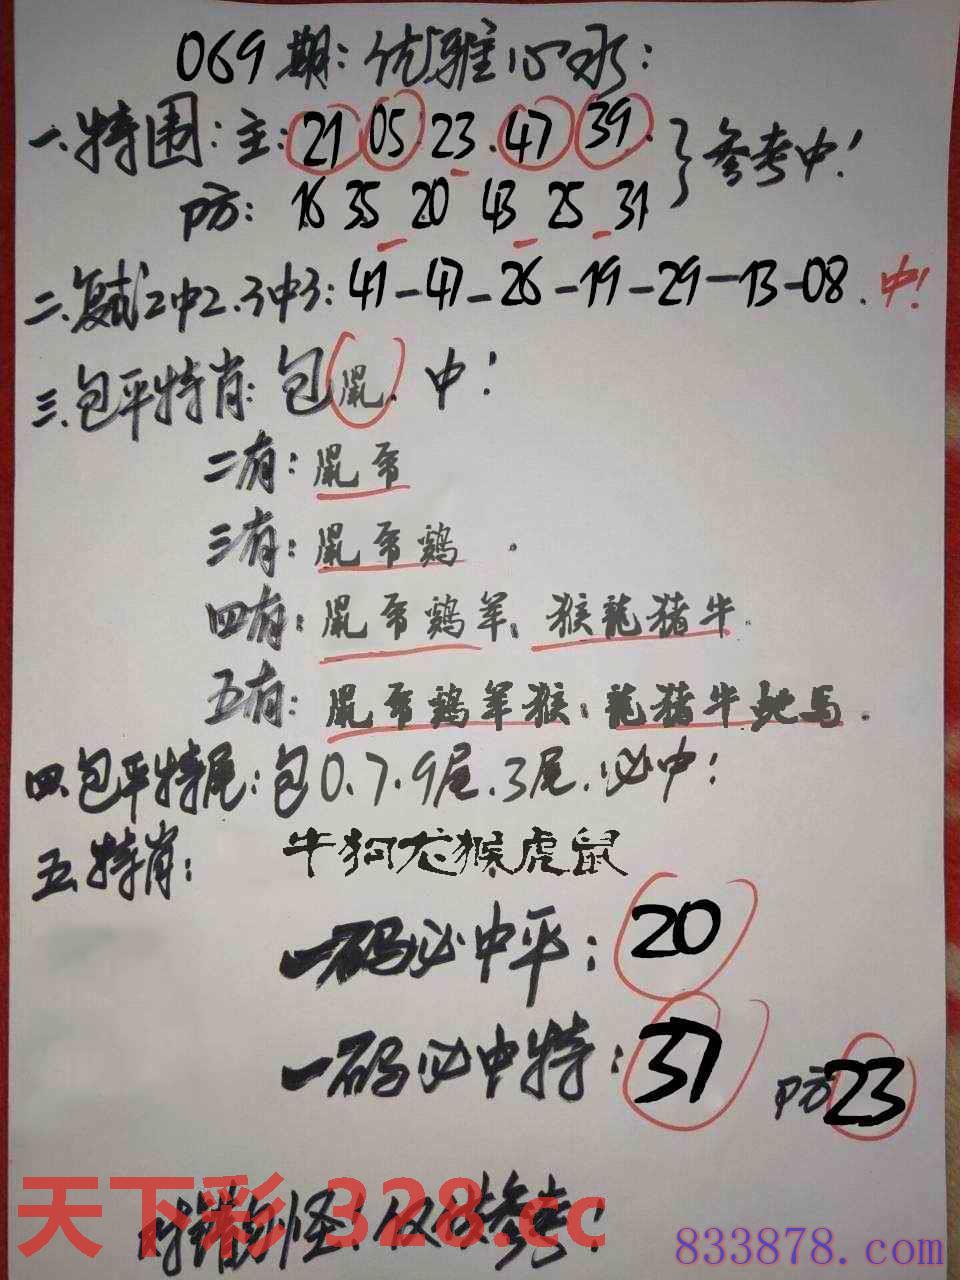 069期:优雅心水:
一.特围:主:21 05 23.47 39.}参考中!
防:16 35 20 43 25 31
二.复试2中2.3中3:41-47-26-19-29-13-08.中!
三.包平特肖:包鼠.中!
二有:鼠兔
三有:鼠兔鸡.
四有:鼠兔鸡羊;猴龍猪牛.
五有:鼠兔鸡羊猴;龍猪牛蛇马.
四.包平特尾:包0.7.9尾.3尾.必中!
五.特肖:牛狗龙猴虎鼠
一码必中平:20
一码必中特:37 防23
对错勿怪!仅供参考!
天下彩 328.cc
833878.com